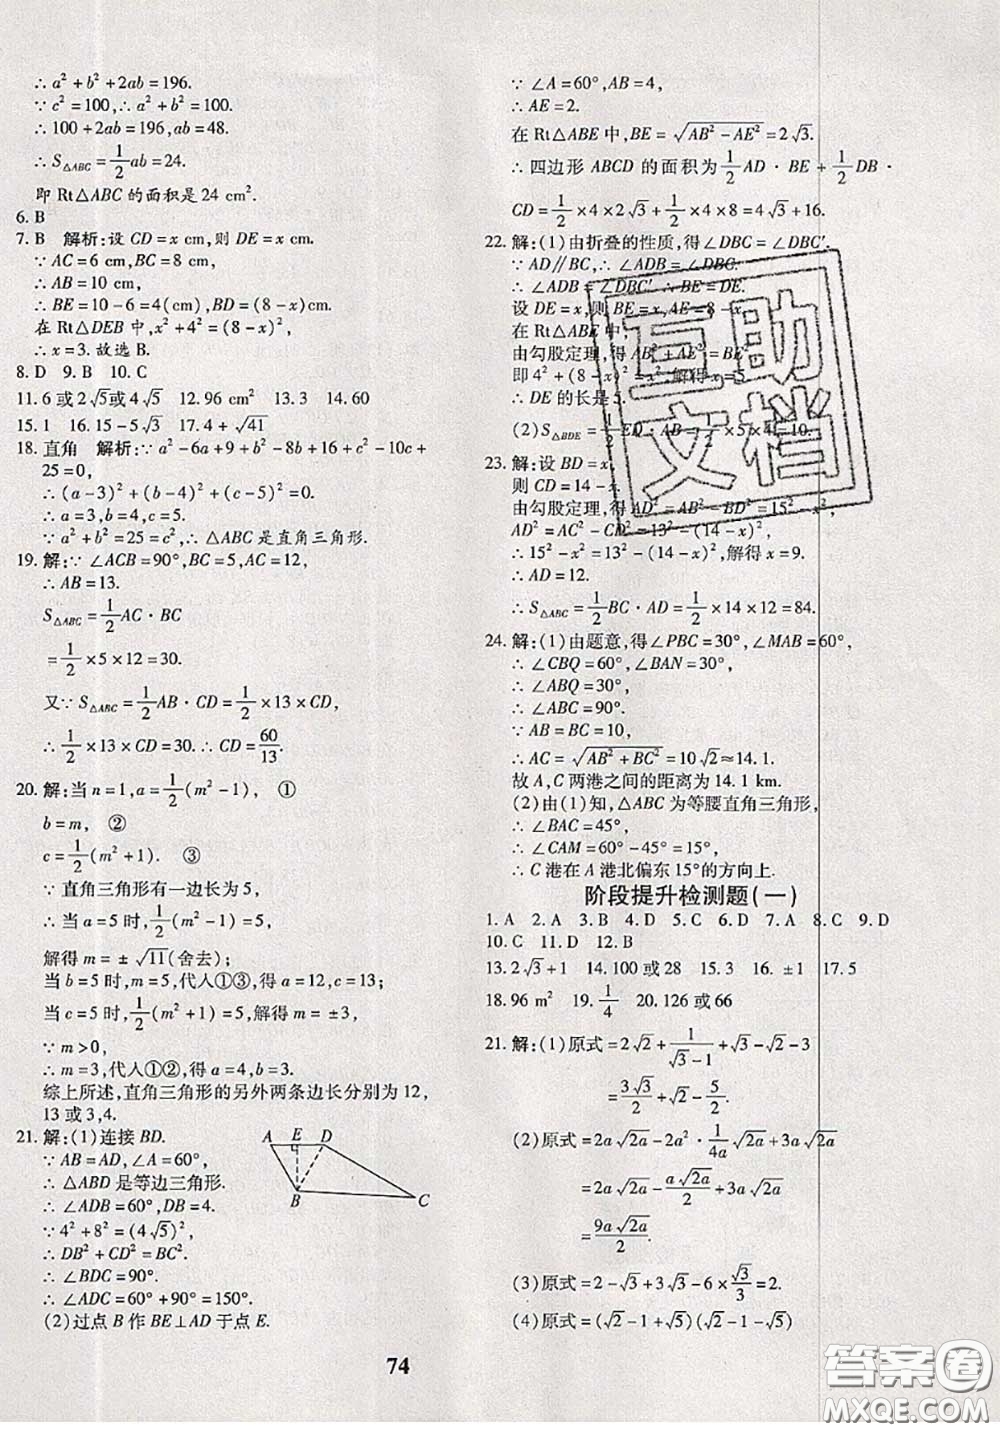 ∴ a²+b²+2ab=196.
∵ c²=100,∴ a²+b²=100.
∴ 100+2ab=196,ab=48.
∴ S△ABC=1/2ab=24.
即 Rt△ABC 的面积是 24 cm².
6. B
7. B 解析:设 CD=x cm,则 DE=x cm.
∵ AC=6 cm,BC=8 cm,
∴ AB=10 cm,
∴ BE=10-6=4(cm),BD=(8-x)cm.
在 Rt△DEB 中,x²+4²=(8-x)²,
∴ x=3.故选 B.
8. D 9. B 10. C
11. 6 或 2√5或 4√5 12. 96 cm² 13. 3 14. 60
15. 1 16. 15-5√3 17. 4+√41
18. 直角 解析:∵ a²-6a+9+b²-8b+16+c²-10c+
25=0,
∴ (a-3)²+(b-4)²+(c-5)²=0.
∴ a=3,b=4,c=5.
∵ a²+b²=25=c²,∴ △ABC 是直角三角形.
19. 解:∵ ∠ACB=90°,BC=5,AC=12,
∴ AB=13.
S△ABC=1/2AC·BC
=1/2×5×12=30.
又∵ S△ABC=1/2AB·CD=1/2×13×CD,
∴ 1/2×13×CD=30.∴ CD=60/13.
20. 解:当 n=1,a=1/2(m²-1), ①
b=m, ②
c=1/2(m²+1). ③
∵ 直角三角形有一边长为 5,
∴ 当 a=5 时,1/2(m²-1)=5,
解得 m=±√11(舍去);
当 b=5 时,m=5,代人①③,得 a=12,c=13;
当 c=5 时,1/2(m²+1)=5,解得 m=±3,
∵ m>0,
∴ m=3,代人①②,得 a=4,b=3.
综上所述,直角三角形的另外两条边长分别为 12,
13 或 3,4.
21. 解:(1)连接 BD.
∵ AB=AD,∠A=60°,
∴ △ABD 是等边三角形.
∴ ∠ADB=60°,DB=4.
∵ 4²+8²=(4√5)²,
∴ DB²+CD²=BC².
∴ ∠BDC=90°.
∴ ∠ADC=60°+90°=150°.
(2)过点 B 作 BE⊥AD 于点 E.
A E D
B C
∵ ∠A=60°,AB=4,
∴ AE=2.
在 Rt△ABE 中,BE=√(AB²-AE²)=2√3.
∴ 四边形 ABCD 的面积为 1/2AD·BE+1/2DB·
CD=1/2×4×2√3+1/2×4×8=4√3+16.
22. 解:(1)由折叠的性质,得∠DBC=∠DBC′.
∵ AD∥BC,∴ ∠ADB=∠DBC.
∴ ∠ADB=∠DBC′.∴ BE=DE.
设 DE=x,则 BE=x,AE=8-x.
在 Rt△ABE 中,
由勾股定理,得 AB²+AE²=BE².
即 4²+(8-x)²=x².解得 x=5.
∴ DE 的长是 5.
(2)S△BDE=1/2ED·AB=1/2×5×4=10.
23. 解:设 BD=x,
则 CD=14-x.
由勾股定理,得 AD²=AB²-BD²=15²-x²,
AD²=AC²-CD²=13²-(14-x)²,
∴ 15²-x²=13²-(14-x)²,解得 x=9.
∴ AD=12.
∴ S△ABC=1/2BC·AD=1/2×14×12=84.
24. 解:(1)由题意,得∠PBC=30°,∠MAB=60°,
∴ ∠CBQ=60°,∠BAN=30°,
∴ ∠ABQ=30°,
∴ ∠ABC=90°.
∵ AB=BC=10,
∴ AC=√(AB²+BC²)=10√2≈14.1.
故 A,C 两港之间的距离为 14.1 km.
(2)由(1)知,△ABC 为等腰直角三角形,
∴ ∠BAC=45°,
∴ ∠CAM=60°-45°=15°,
∴ C 港在 A 港北偏东 15°的方向上.
阶段提升检测题(一)
1. A 2. A 3. B 4. D 5. C 6. D 7. A 8. C 9. D
10. C 11. D 12. B
13. 2√3+1 14. 100 或 28 15. 3 16. ±1 17. 5
18. 96 m² 19. 1/4 20. 126 或 66
21. 解:(1)原式=2√2+1/(√3-1)+√3-√2-3
=3√3/2+√2-5/2.
(2)原式=2a√2a-2a²·1/4a√2a+3a√2a
=2a√2a-a√2a/2+3a√2a
=9a√2a/2.
(3)原式=2-√3+3√3-6×√3/3=2.
(4)原式=(√2-1+√5)(√2-1-√5)
74
互助
文档
答案卷
MXQE.COM